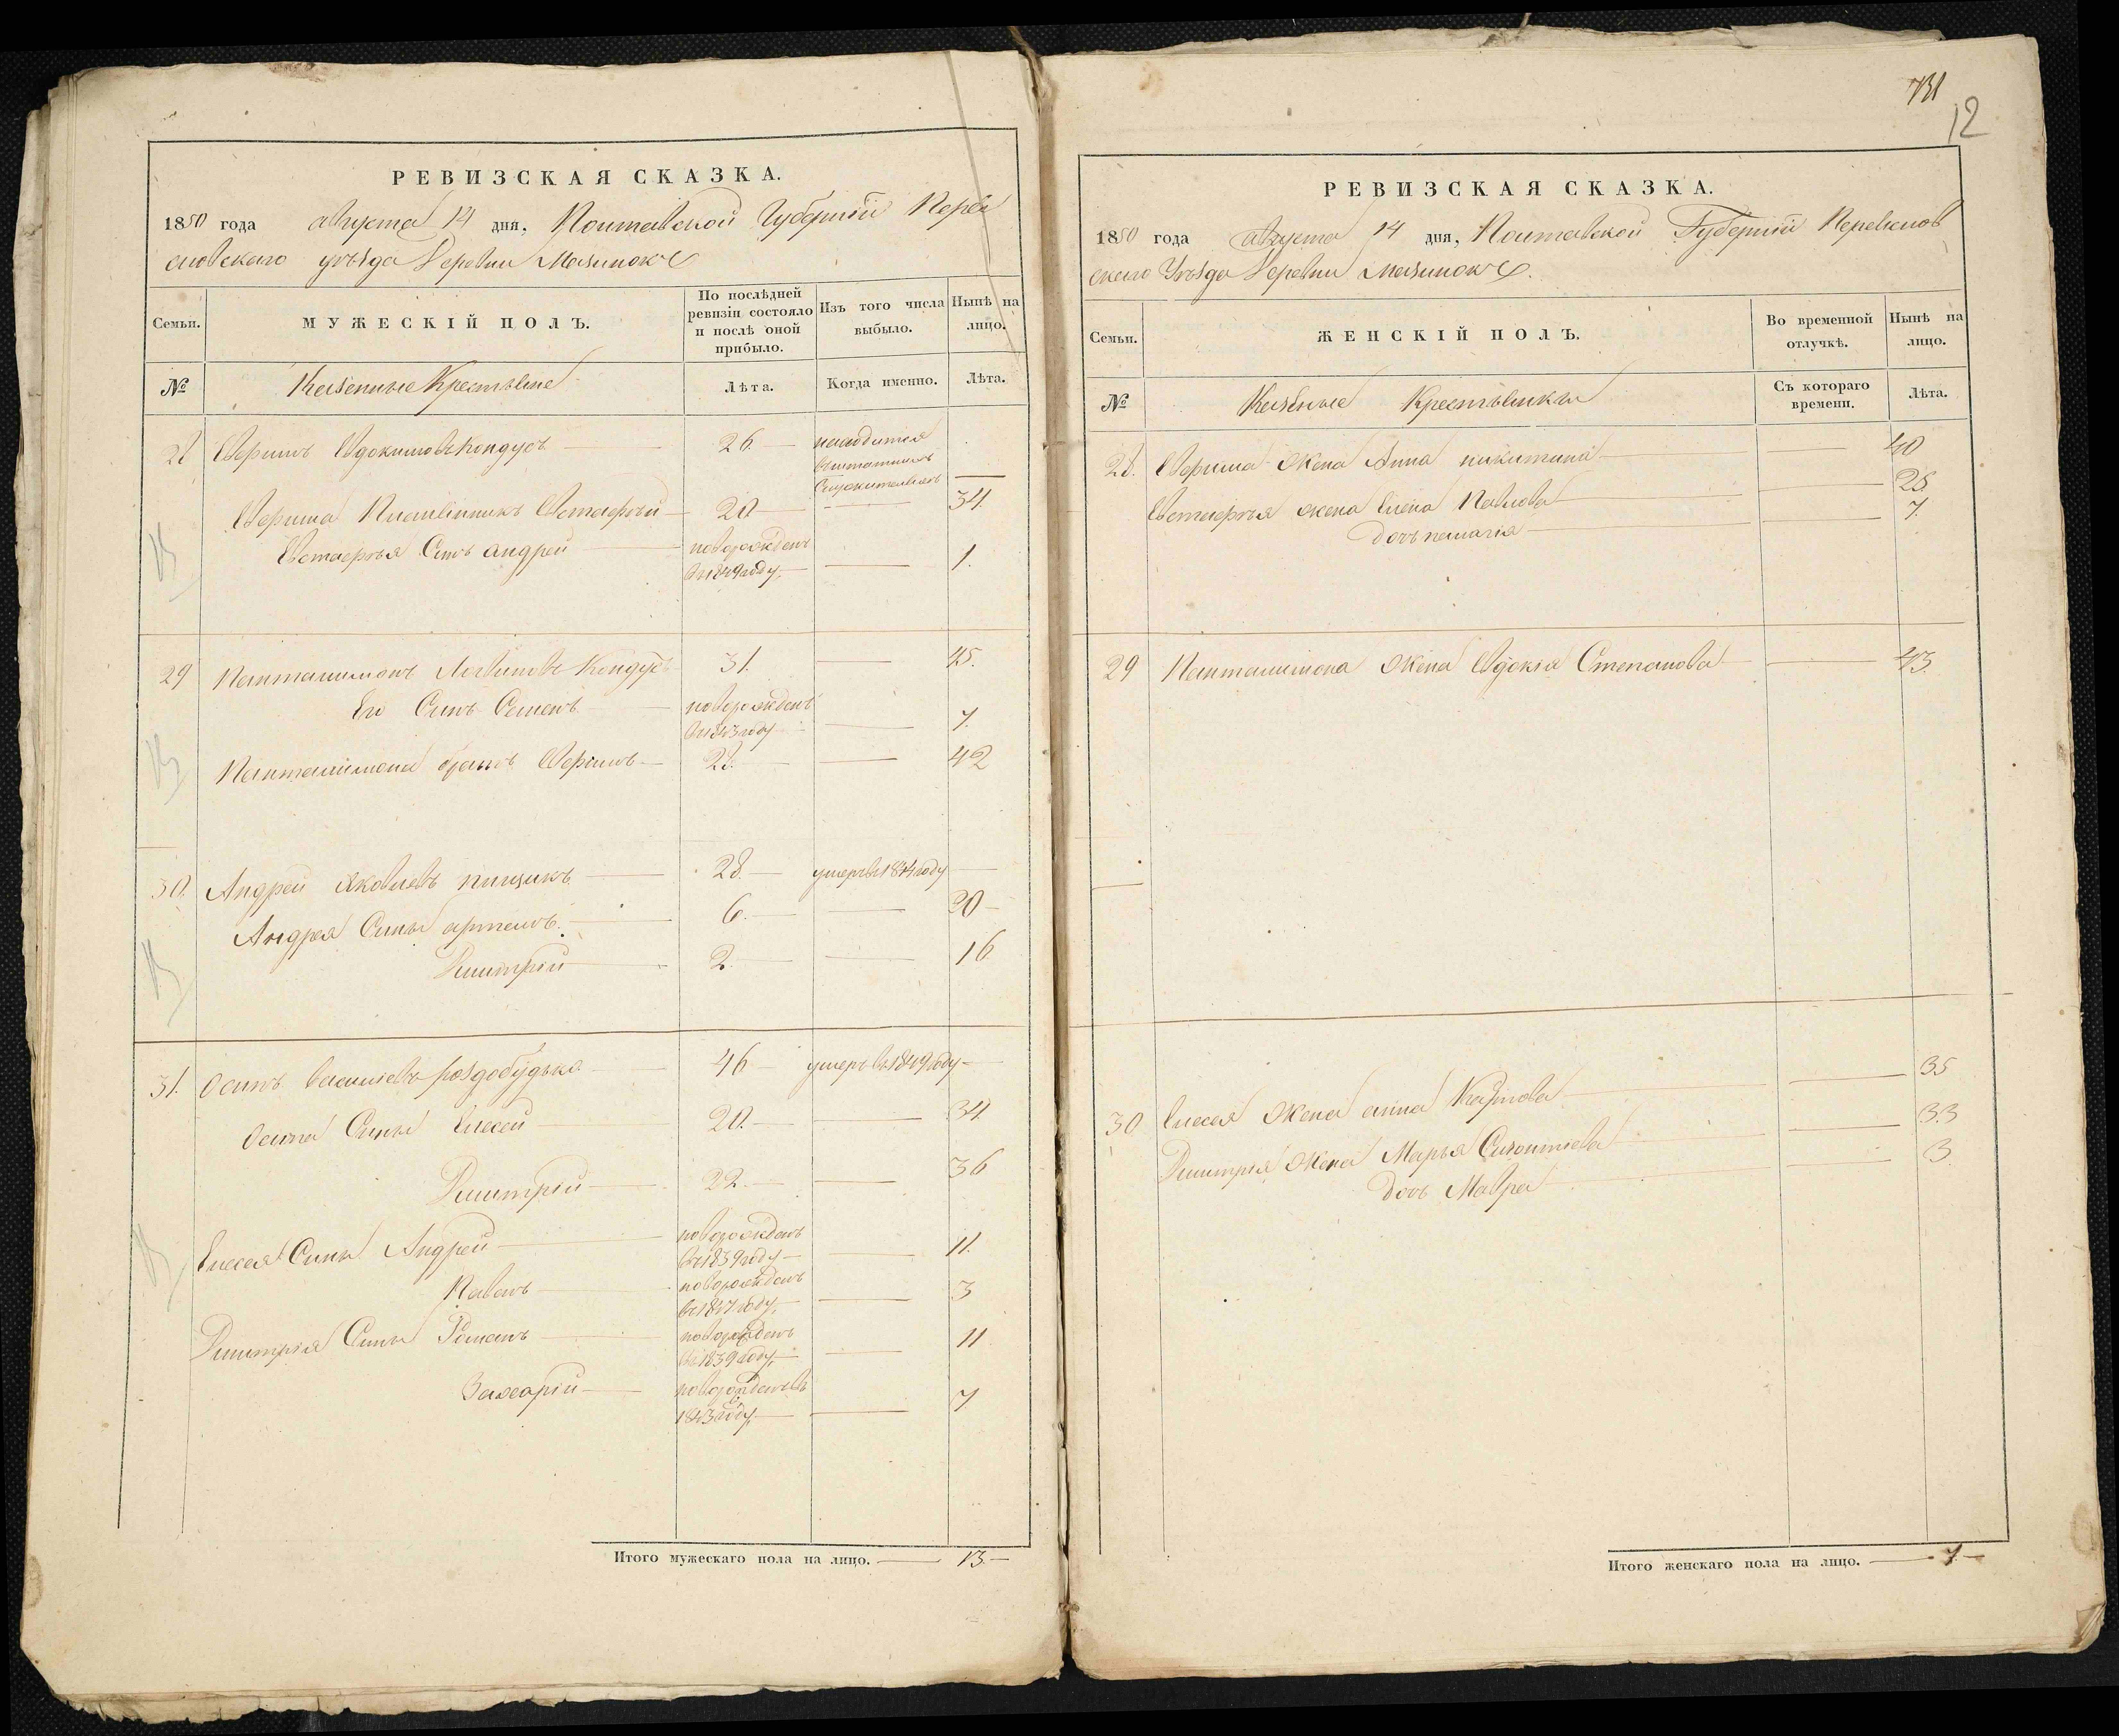 РЕВИЗСКАЯ СКАЗКА.
1850 года августа 14 дня, Полтавской Губерніи Перея
словскаго уѣзда Деревни Мазинокъ
Семьи. МУЖЕСКІЙ ПОЛЪ. По послѣдней ревизіи состояло и послѣ оной прибыло. Изъ того числа выбыло. Нынѣ на лицо.
№ Казенные Крестьяне Лѣта. Когда именно. Лѣта.
28 Ефримъ Евдокимовъ Кондусъ 26 находится
Ефрима Евстафій 20 34.
Евстафія Сынъ андрей новорожденъ
въ 1849 году 1.
29 Панталимонъ Логвиновъ Кондусъ 31. 45.
Его Сынъ Семенъ новорожденъ
въ 1843 году 7.
Панталимона братъ Ефримъ 28. 42
30. Андрей Яковлевъ 28. умеръ въ 1844 году
Андрея Сыны артемъ 6. 20
Дмитрій 2. 16
31. Осипъ василіевъ роздобудько 46 умеръ въ 1849 году
Осипа Сыны Елесей 20. 34
Дмитрій 22. 36
Елесея Сыны Андрей новорожденъ
въ 1839 году 11.
Павелъ новорожденъ
въ 1847 году 3
Дмитрія Сыны Романъ новорожденъ
въ 1839 году 11
Захарій новорожденъ въ
1843 году 7
Итого мужескаго пола на лицо. 13.
731
12
РЕВИЗСКАЯ СКАЗКА.
1850 года августа 14 дня, Полтавской Губерніи Переяслов
скаго Уѣзда Деревни Мазинокъ.
Семьи. ЖЕНСКІЙ ПОЛЪ. Во временной отлучкѣ. Нынѣ на лицо.
№ Казеные Крестьянки Съ котораго времени. Лѣта.
28. Ефрима Жена Анна никитина 40
Евстафія жена Елена Павлова 28.
Дочь пелагія 7.
29 Панталимона Жена Евдокія Степанова 43.
30 Елесея Жена анна Карпова 35
Дмитрія Жена Марья 33
Дочь Мавра 3
Итого женскаго пола на лицо. 7